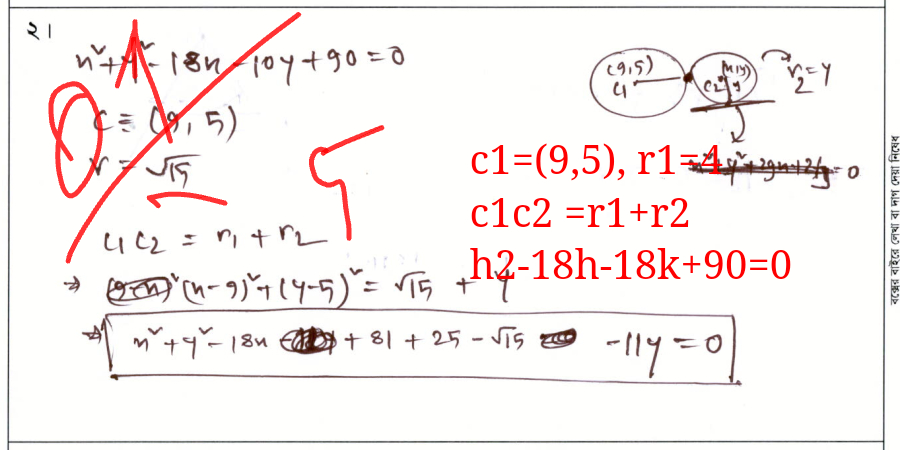 ২।
x² + y² - 18x - 10y + 90 = 0
C ≡ (9, 5)
r = √15
C1 C2 = r1 + r2
⇒ (x-9)² + (y-5)² = √15 + y
⇒ x² + y² - 18x + 81 + 25 - √15 - 11y = 0
(9,5)
C1
(x,y)
C2 y
r2 = y
= 0
c1=(9,5), r1=4
c1c2 =r1+r2
h2-18h-18k+90=0
বক্সের বাইরে লেখা বা দাগ দেয়া নিষেধ